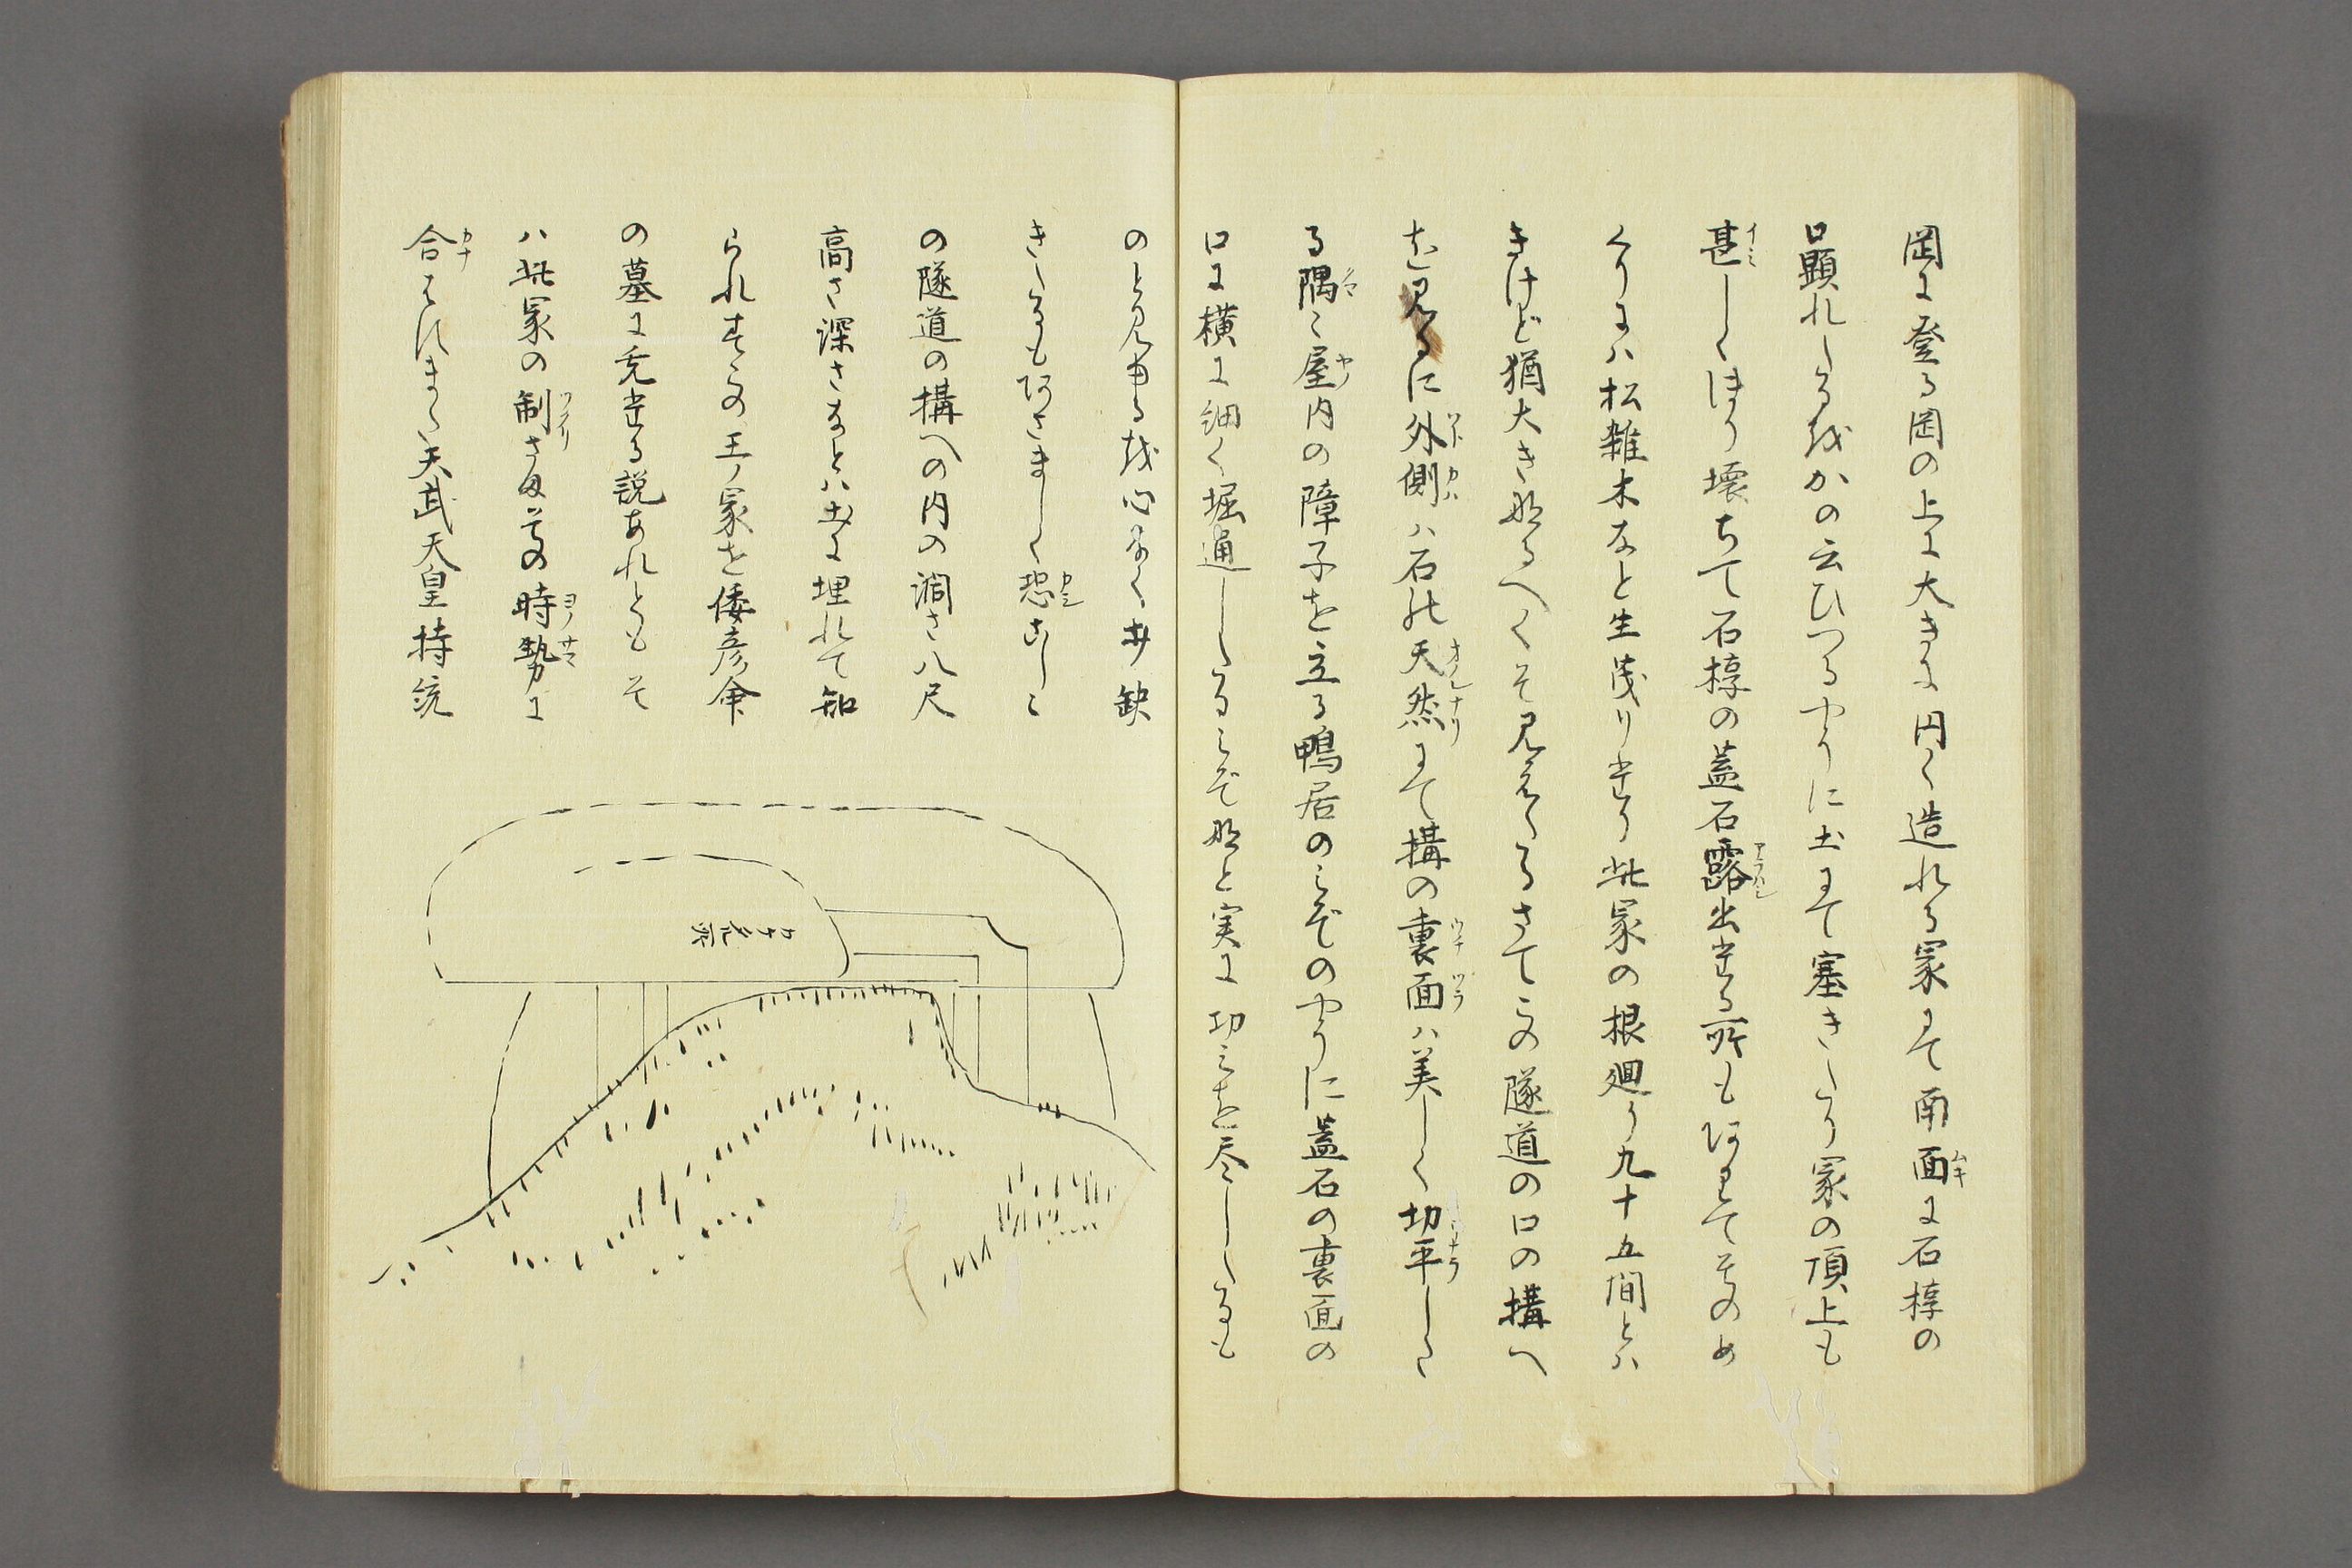 岡に登る岡の上に大きに円く造れる冢にて南面に石椁の
口顕れたるをかの云ひつるやうに土にて塞きたり冢の頂上も
甚しくほり壊ちて石椁の蓋石露出たる所も阿りて其のめ
くりには松雑木なと生茂りたり此冢の根廻り九十五間とハ
きけど猶大き那るへくそ見えたるさて此の隧道の口の構へ
を見るに外側ハ石の天然にて構の裏面ハ美しく切平した
る隅々屋内の障子を立る鴨居のみぞのやうに蓋石の裏面の
口に横に細く堀通したるみぞ那と実に功みを尽したるも
のと見ゆるを心なく打缺
きたるも阿さましく恐こし
の隧道の構への内の濶さ八尺
高さ深さなとハ土に埋れて知
られすその王ノ冢を倭彦命
の墓に充たる説あれとも そ
ハ此冢の制さま其の時勢に
合はすまた天武天皇持統